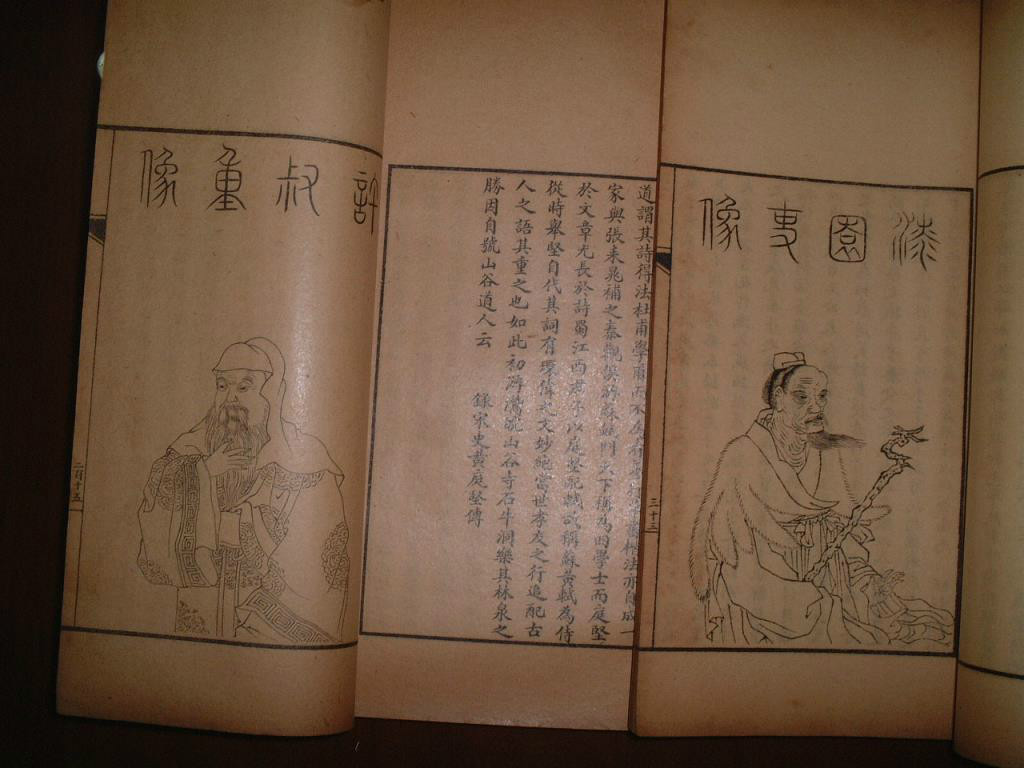 漆園吏像
三十三
道謂其詩得法杜甫學甫而不為者善行草書楷法亦自成一
家與張耒晁補之秦觀俱游蘇軾門天下稱為四學士而庭堅
於文章尤長於詩蜀江西君子以庭堅配軾故稱蘇黃軾為侍
從時舉堅自代其詞有瓌偉之文妙絕當世孝友之行追配古
人之語其重之也如此初游灊皖山谷寺石牛洞樂其林泉之
勝因自號山谷道人云 錄宋史黃庭堅傳
許叔重像